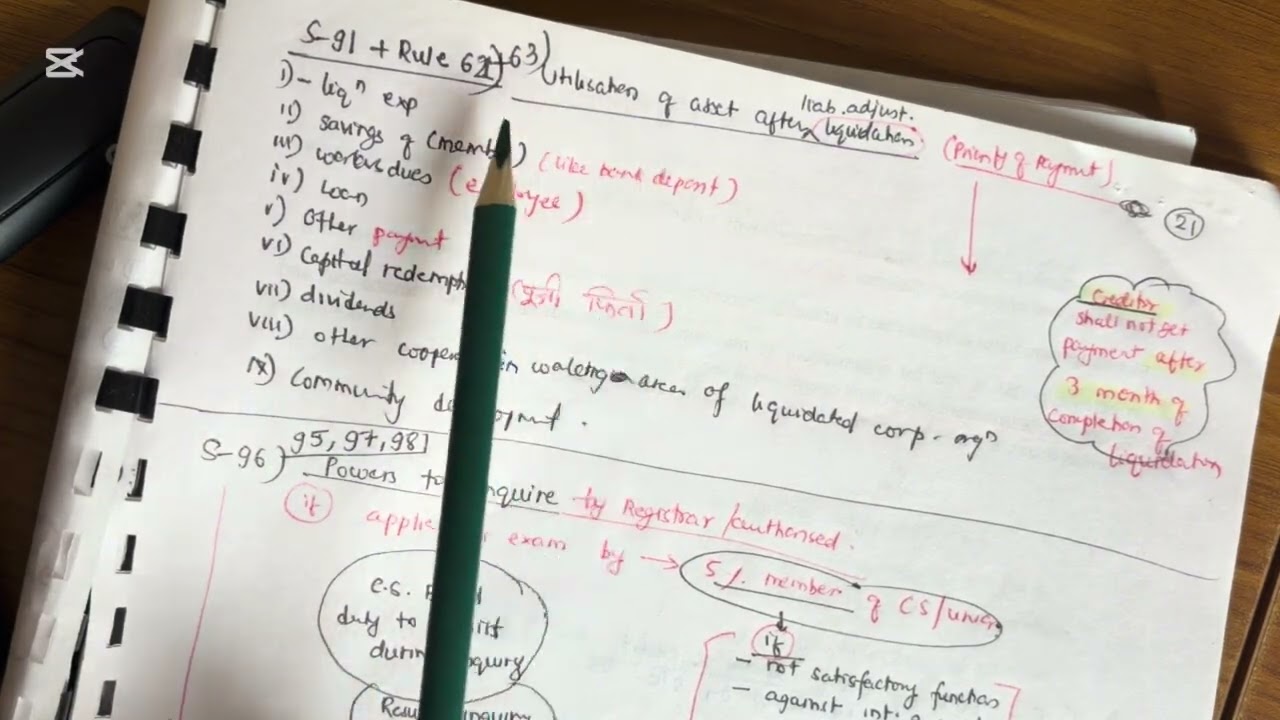 S-91 + Rule 62)+63) Utilisation of asset after liquidation.
liab. adjust.
(Priority of Payment)
i) - liqⁿ exp
ii) savings of (member) (like bank deposit)
iii) workers dues (employee)
iv) Loan
v) Other payment
vi) Capital redempt (पूजी फिर्ता)
vii) dividends
viii) other cooper in area of liquidated corp. orgⁿ
ix) Community d opment.
21
Creditor
shall not get
payment after
3 month of
completion of
liquidation
S-96) 95, 97, 98
Powers to nquire by Registrar /authorised.
if applie exam by → 5% member of CS/
c.s.
duty to
durin quiry
Resu nquiry
if
- not satisfactory function
- against int.